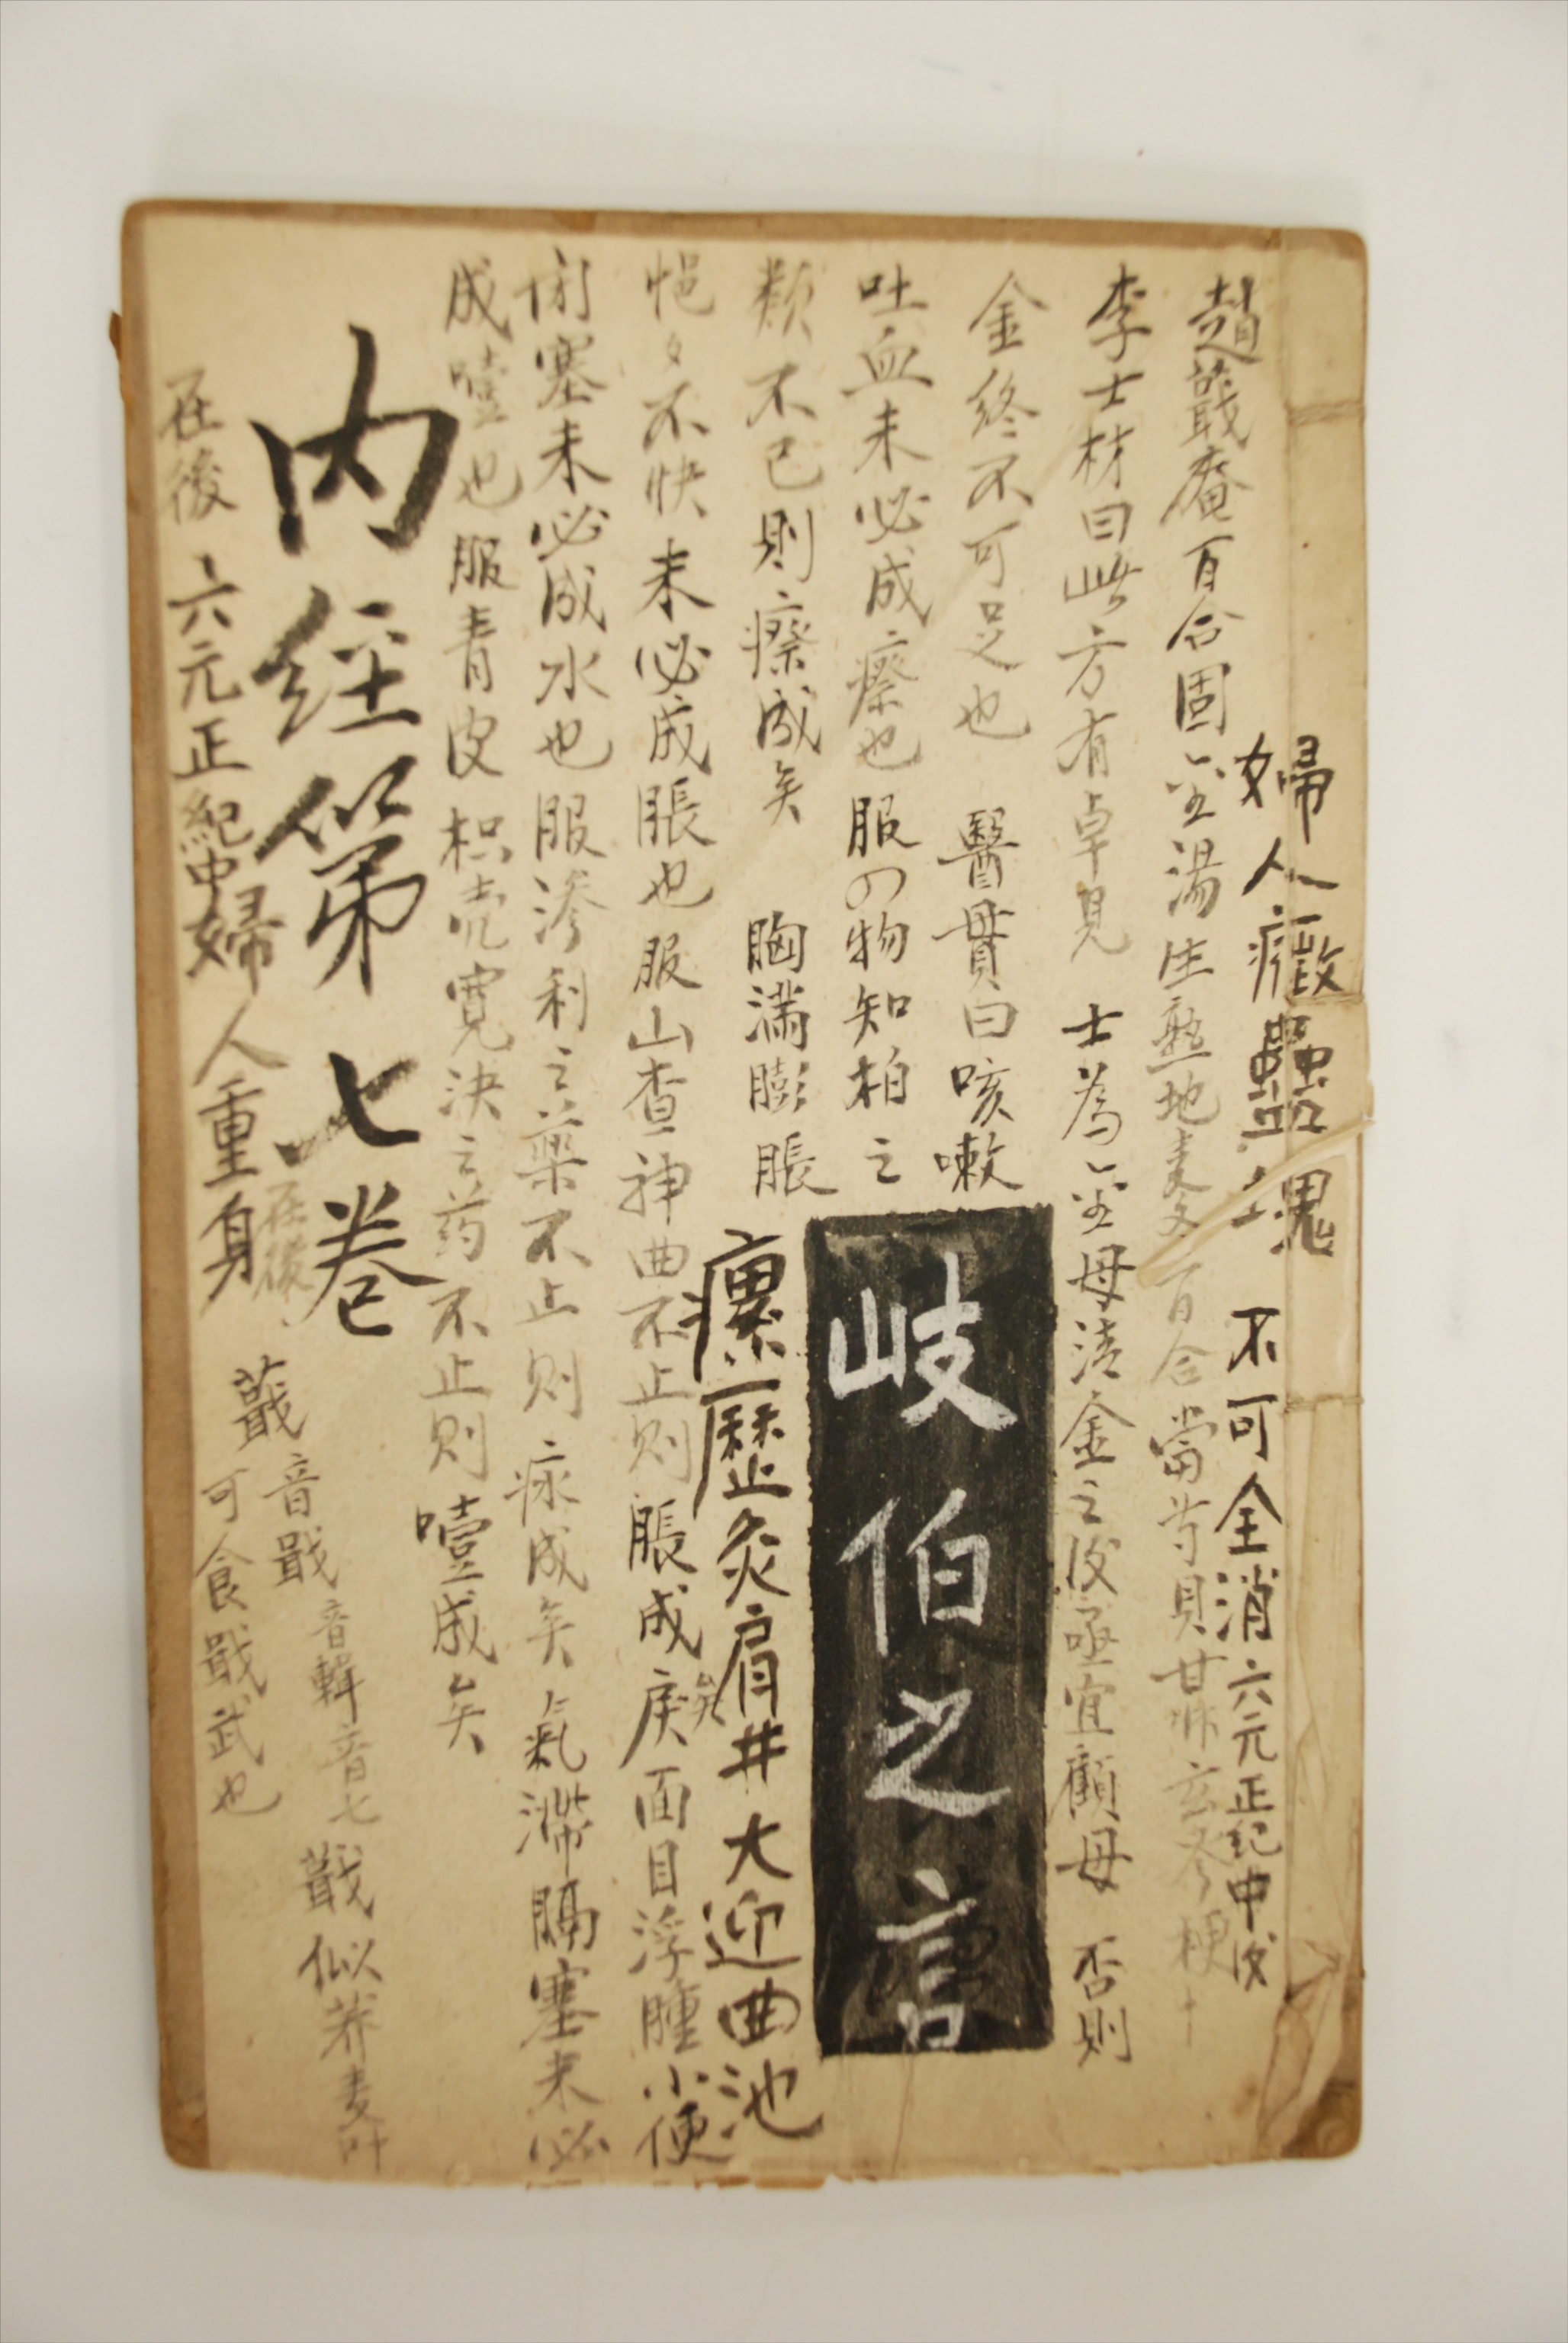 婦人癥蠱塊 不可全消六元正紀中後
趙蕺庵百合固金湯生熟地麦冬百合當芍貝甘𣏌玄參梗
李士材曰此方有卓見 士為金母清金之後亟宜顧母 否則
金終不可足也 醫貫曰咳嗽
吐血未必成瘵也服四物知柏之
類不已則瘵成矣 胸满膨脹
悒々不快未必成脹也服山查神曲不止則脹成矣 面目浮腫小便
閉塞未必成水也服渗利之藥不止則 成矣 氣滯膈塞未必
成噎也服青皮枳壳寛決之药不止則噎成矣
岐伯之言
瘰歷灸肩井大迎曲池
内经第七卷
在後 六元正紀中婦人重身
在後
蕺音戢音輯音七蕺似荞麦叶
可食戢武也